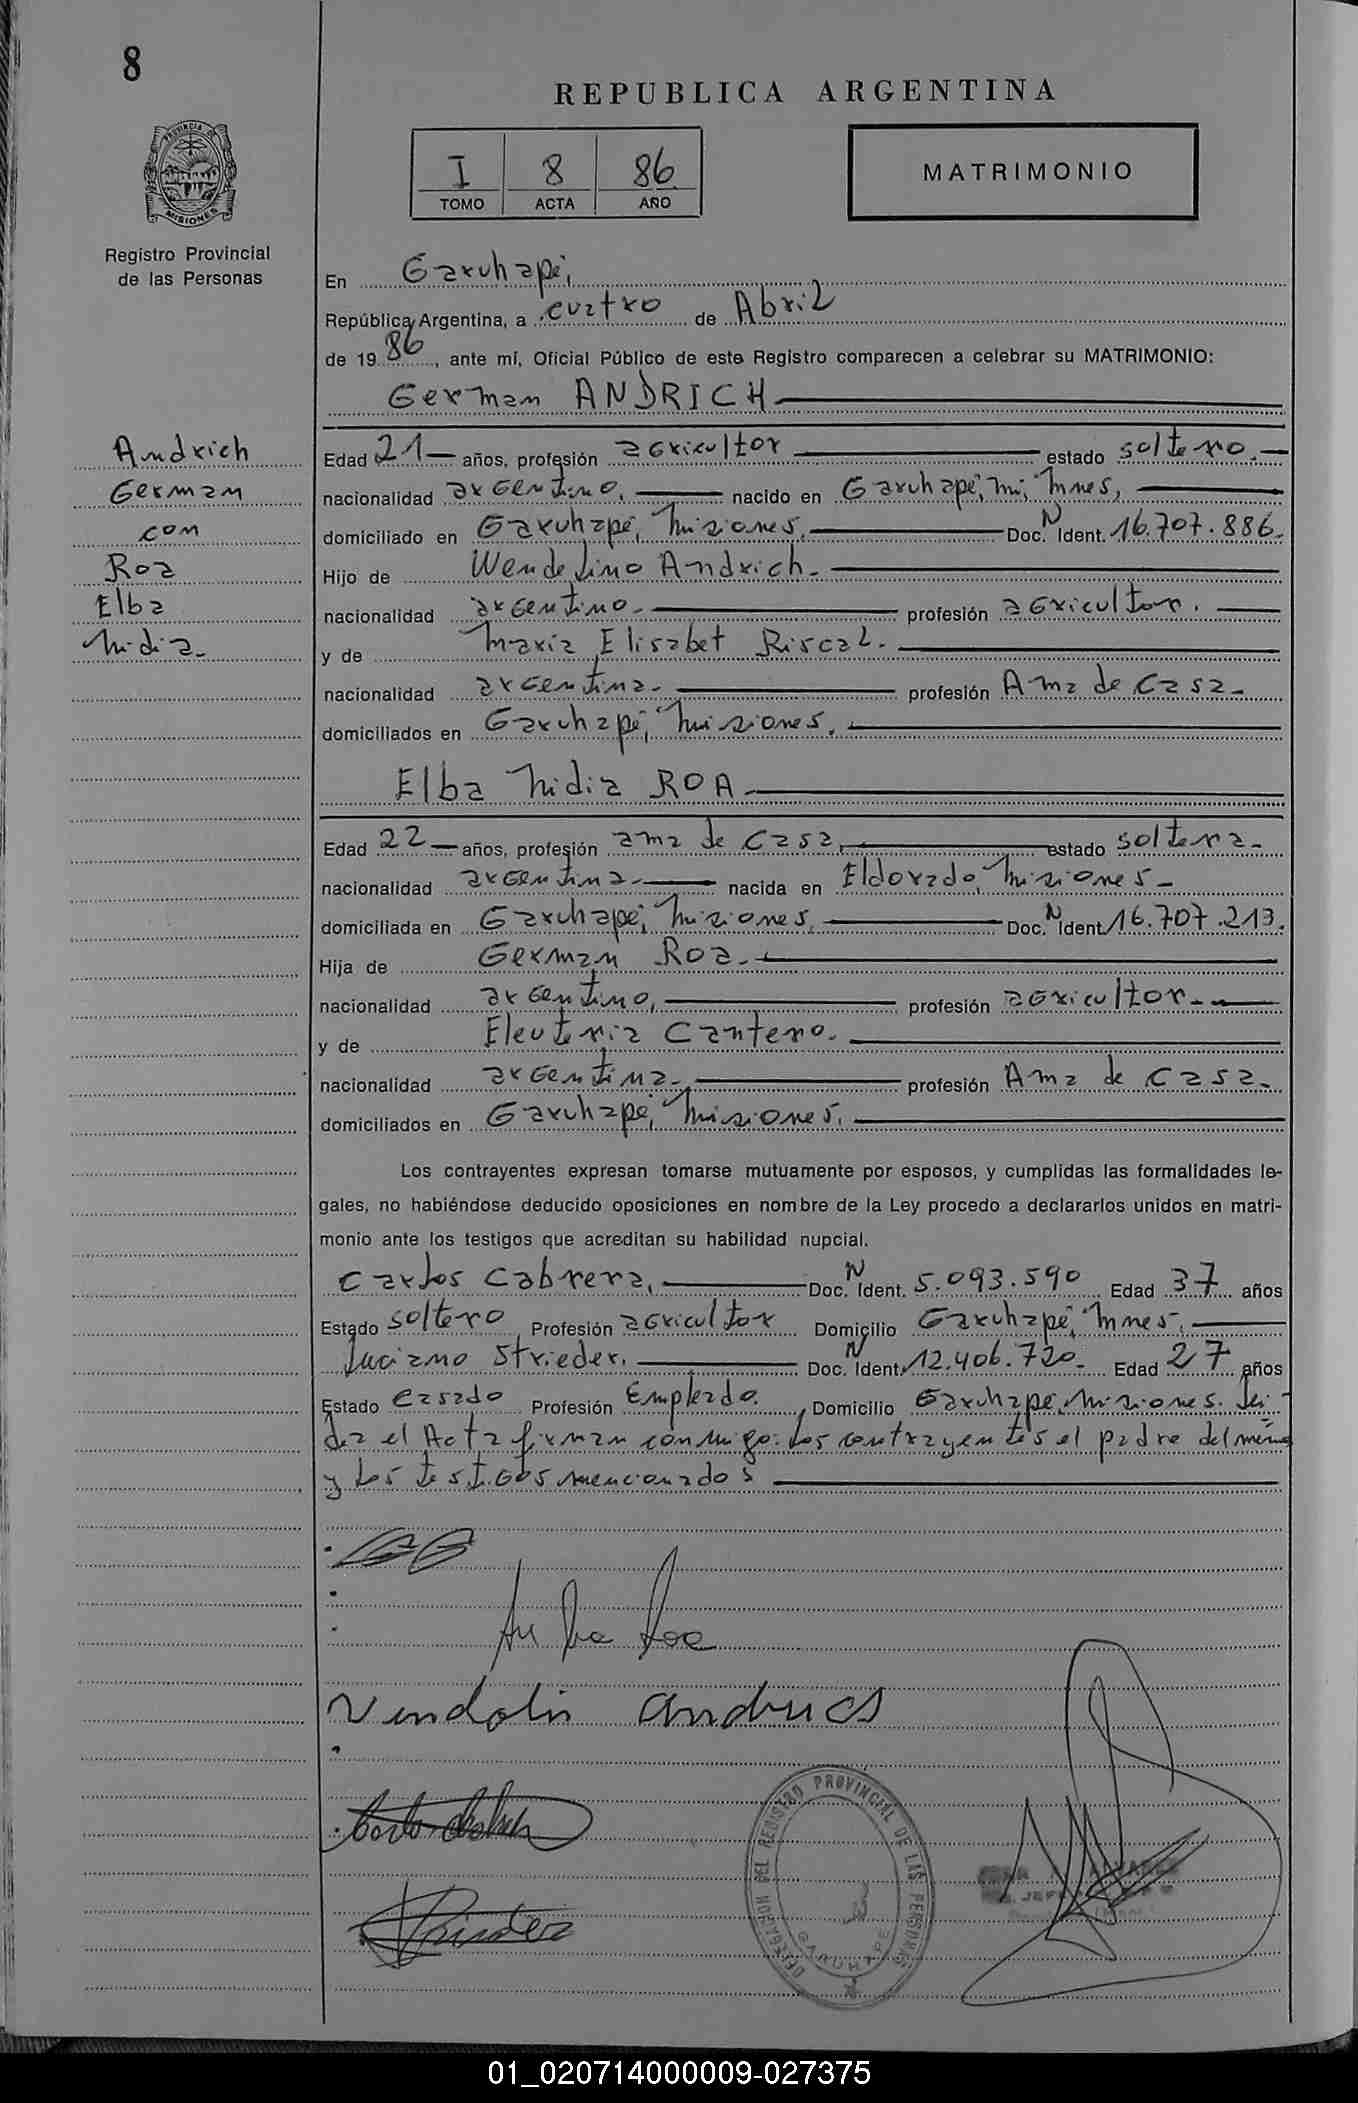 8
REPUBLICA ARGENTINA
I 8 86
TOMO ACTA AÑO
MATRIMONIO
PROVINCIA DE
MISIONES
Registro Provincial
de las Personas
En Garuhapé,
República Argentina, a cuatro de Abril
de 1986, ante mí, Oficial Público de este Registro comparecen a celebrar su MATRIMONIO:
German ANDRICH
Andrich
German
con
Roa
Elba
Nidia.
Edad 21 años, profesión agricultor estado soltero.
nacionalidad argentino. nacido en Garuhapé, Mnes,
domiciliado en Garuhapé, Misiones. Doc. N Ident. 16.707.886.
Hijo de Wendelino Andrich.
nacionalidad argentino. profesión agricultor.
y de Maria Elisabet Riscal.
nacionalidad argentina. profesión Ama de Casa.
domiciliados en Garuhapé, Misiones.
Elba Nidia ROA
Edad 22 años, profesión ama de Casa, estado soltera.
nacionalidad argentina. nacida en Eldorado, Misiones
domiciliada en Garuhapé, Misiones, Doc. N Ident. 16.707.213.
Hija de German Roa.
nacionalidad argentino, profesión agricultor.
y de Eleuteria Cantero.
nacionalidad argentina. profesión Ama de Casa.
domiciliados en Garuhapé, Misiones.
Los contrayentes expresan tomarse mutuamente por esposos, y cumplidas las formalidades le-
gales, no habiéndose deducido oposiciones en nombre de la Ley procedo a declararlos unidos en matri-
monio ante los testigos que acreditan su habilidad nupcial.
Carlos Cabrera, Doc. N Ident. 5.093.590 Edad 37 años
Estado soltero Profesión agricultor Domicilio Garuhapé, Mnes.
Luciano Strieder. Doc. N Ident. 12.406.720. Edad 27 años
Estado Casado Profesión Empleado. Domicilio Garuhapé, Misiones. Lei
da el Acta firman conmigo: los contrayentes el padre del
y los testigos mencionados
Vendolin
DELEGACION DEL REGISTRO PROVINCIAL DE LAS PERSONAS
GARUHAPE
ALVAREZ
01_020714000009-027375